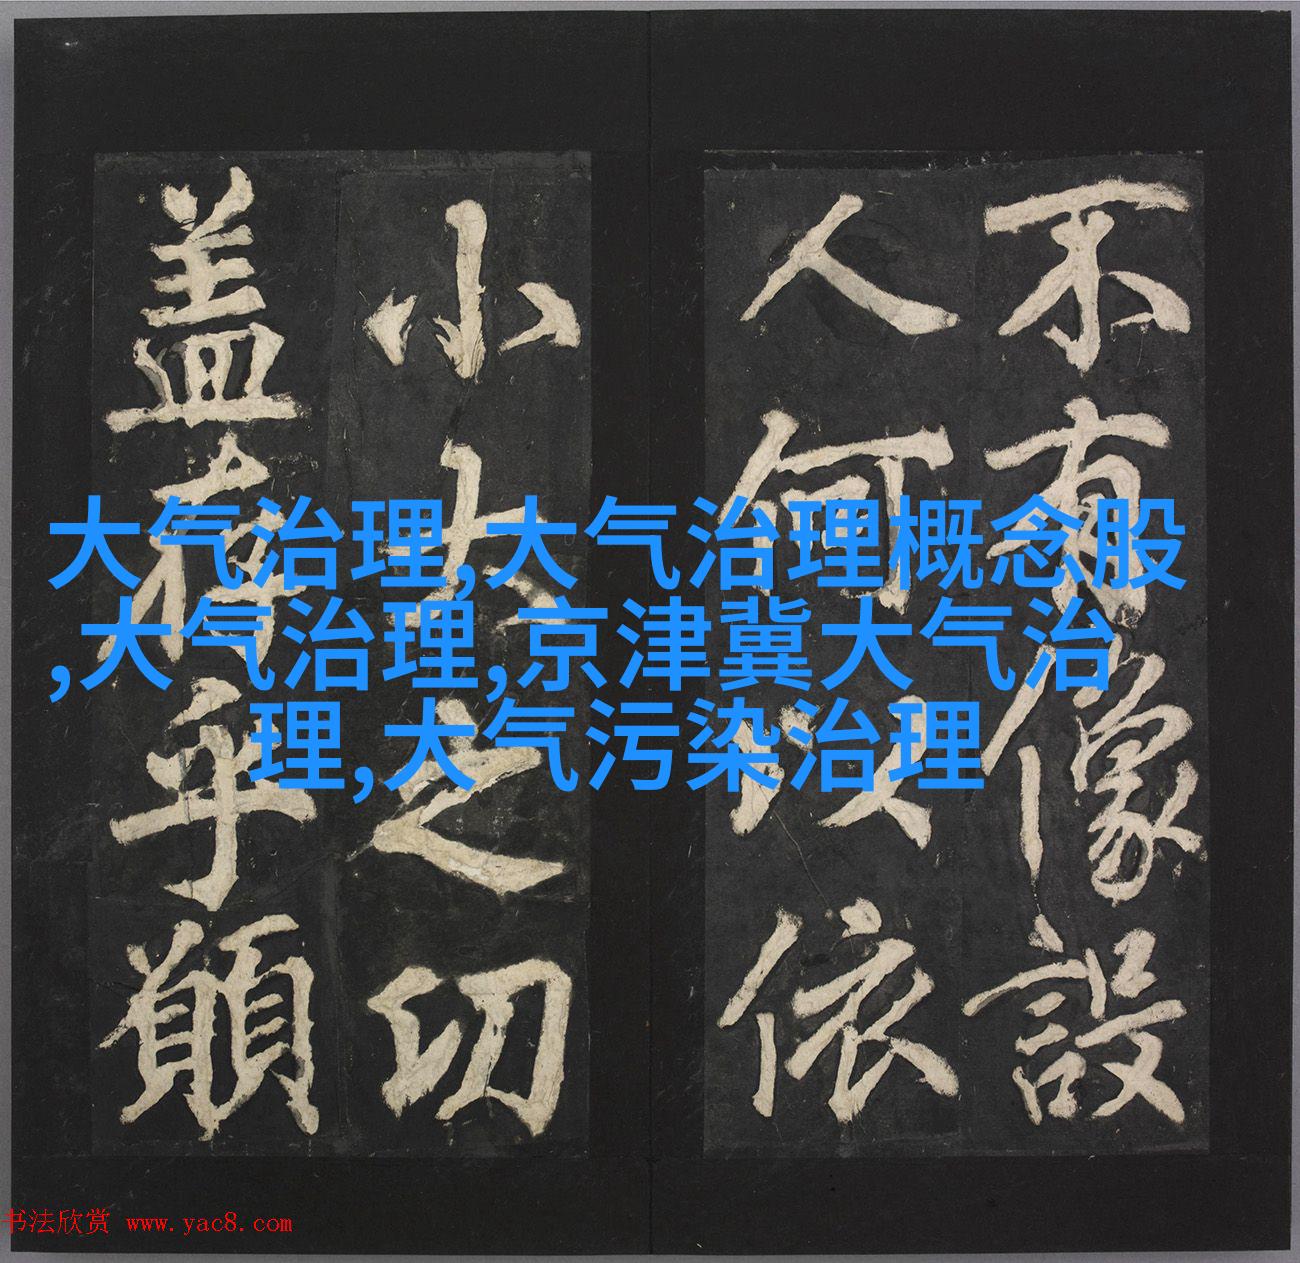 不有像設
人何以依
小大之切
蓋存乎願
大气治理,大气治理概念股
,大气治理,京津冀大气治
理,大气污染治理
书法欣赏 www.yac8.com